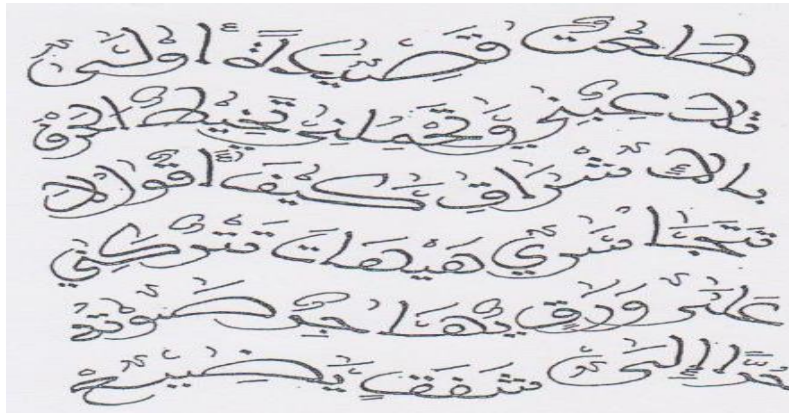 قصيدة أولى
تلاعبني وتحملني تخيط الحرف
بالاشراق كيف
تتجاسري هيهات تتركني
على ورق يهاجر صوته
حرا إلى شفق يضيع